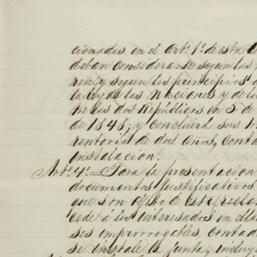 cionadas en el Artº 1º de esta
deban considerarse segun las
ren y segun los principios
la ley de las Naciones y de
he las dos Repúblicas en 2 de
de 1848; y concluirá sus
rentoria de dos años, conta
instalacion.
Artº 4º Para la presentacion
documentos justificativos
que son objeto de esta reclam
cede á los interesados en ella
ses improrrogables, contad
se instale la Junta,